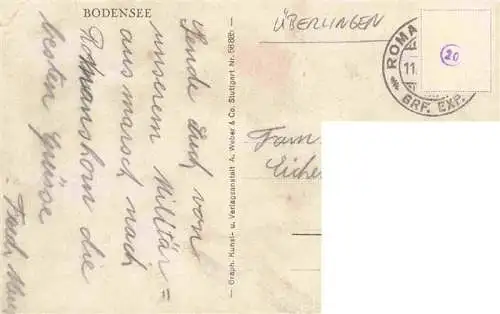 BODENSEE
Sende Euch von
unserem Militär=
ausmarsch nach
Romanshorn die
besten Grüsse
Graph. Kunst- u. Verlagsanstalt A. Weber & Co. Stuttgart Nr. 5888b
ÜBERLINGEN
ROMA
11.
GRF. EXP.
20
Fam
Eiche